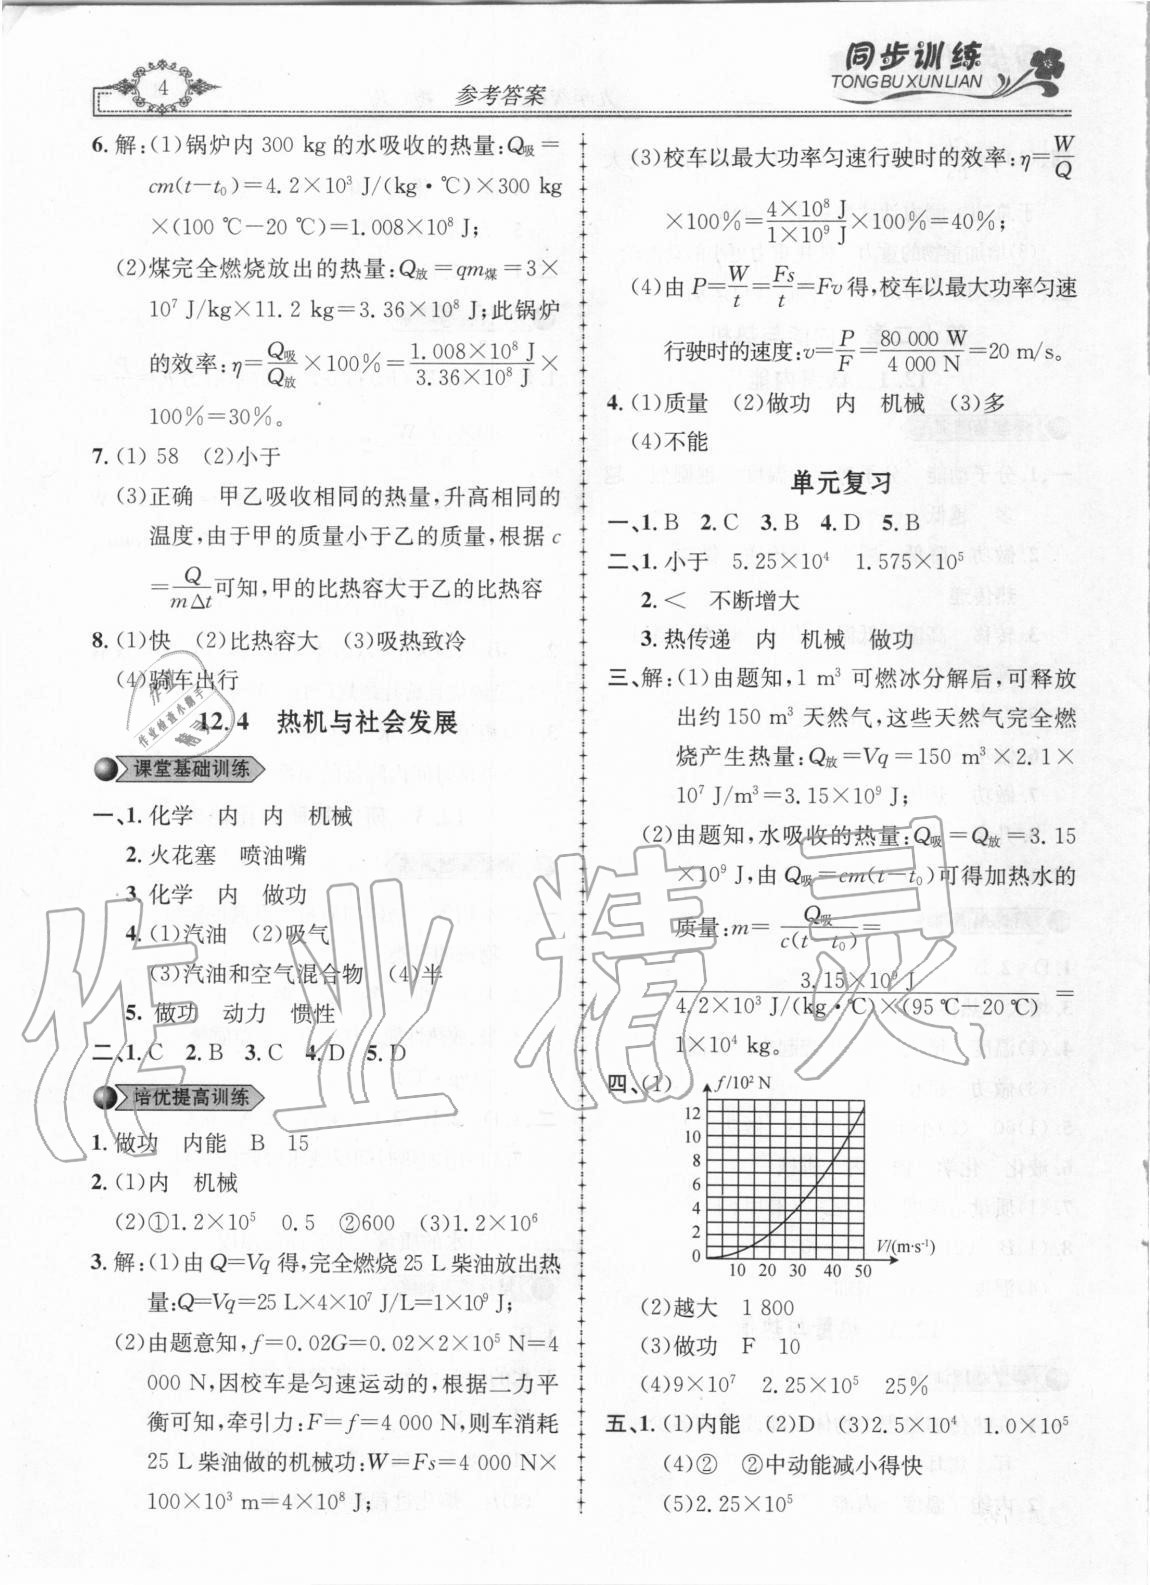 4
参考答案
同步训练
TONGBU XUNLIAN
6.解:(1)锅炉内 300 kg 的水吸收的热量:Q吸=
cm(t-t₀)=4.2×10³ J/(kg·℃)×300 kg
×(100 ℃-20 ℃)=1.008×10⁸ J;
(2)煤完全燃烧放出的热量:Q放=qm煤=3×
10⁷ J/kg×11.2 kg=3.36×10⁸ J;此锅炉
的效率:η=Q吸/Q放×100%=1.008×10⁸ J/3.36×10⁸ J×
100%=30%。
7.(1) 58 (2)小于
(3)正确 甲乙吸收相同的热量,升高相同的
温度,由于甲的质量小于乙的质量,根据 c
=Q/mΔt可知,甲的比热容大于乙的比热容
8.(1)快 (2)比热容大 (3)吸热致冷
(4)骑车出行
12.4 热机与社会发展
课堂基础训练
一、1.化学 内 内 机械
2.火花塞 喷油嘴
3.化学 内 做功
4.(1)汽油 (2)吸气
(3)汽油和空气混合物 (4)半
5.做功 动力 惯性
二、1.C 2.B 3.C 4.D 5.D
培优提高训练
1.做功 内能 B 15
2.(1)内 机械
(2)①1.2×10⁵ 0.5 ②600 (3)1.2×10⁶
3.解:(1)由 Q=Vq 得,完全燃烧 25 L 柴油放出热
量:Q=Vq=25 L×4×10⁷ J/L=1×10⁹ J;
(2)由题意知,f=0.02G=0.02×2×10⁵ N=4
000 N,因校车是匀速运动的,根据二力平
衡可知,牵引力:F=f=4 000 N,则车消耗
25 L 柴油做的机械功:W=Fs=4 000 N×
100×10³ m=4×10⁸ J;
(3)校车以最大功率匀速行驶时的效率:η=W/Q
×100%=4×10⁸ J/1×10⁹ J×100%=40%;
(4)由 P=W/t=Fs/t=Fv 得,校车以最大功率匀速
行驶时的速度:v=P/F=80 000 W/4 000 N=20 m/s。
4.(1)质量 (2)做功 内 机械 (3)多
(4)不能
单元复习
一、1.B 2.C 3.B 4.D 5.B
二、1.小于 5.25×10⁴ 1.575×10⁵
2.< 不断增大
3.热传递 内 机械 做功
三、解:(1)由题知,1 m³ 可燃冰分解后,可释放
出约 150 m³ 天然气,这些天然气完全燃
烧产生热量:Q放=Vq=150 m³×2.1×
10⁷ J/m³=3.15×10⁹ J;
(2)由题知,水吸收的热量:Q吸=Q放=3.15
×10⁹ J,由 Q吸=cm(t-t₀)可得加热水的
质量:m=Q吸/c(t-t₀)=
3.15×10⁹ J/4.2×10³ J/(kg·℃)×(95 ℃-20 ℃)=
1×10⁴ kg。
四、(1)
f/10² N
12
10
8
6
4
2
0
10 20 30 40 50
V/(m·s⁻¹)
(2)越大 1 800
(3)做功 F 10
(4)9×10⁷ 2.25×10⁵ 25%
五、1.(1)内能 (2)D (3)2.5×10⁴ 1.0×10⁵
(4)② ②中动能减小得快
(5)2.25×10⁵
作业精灵